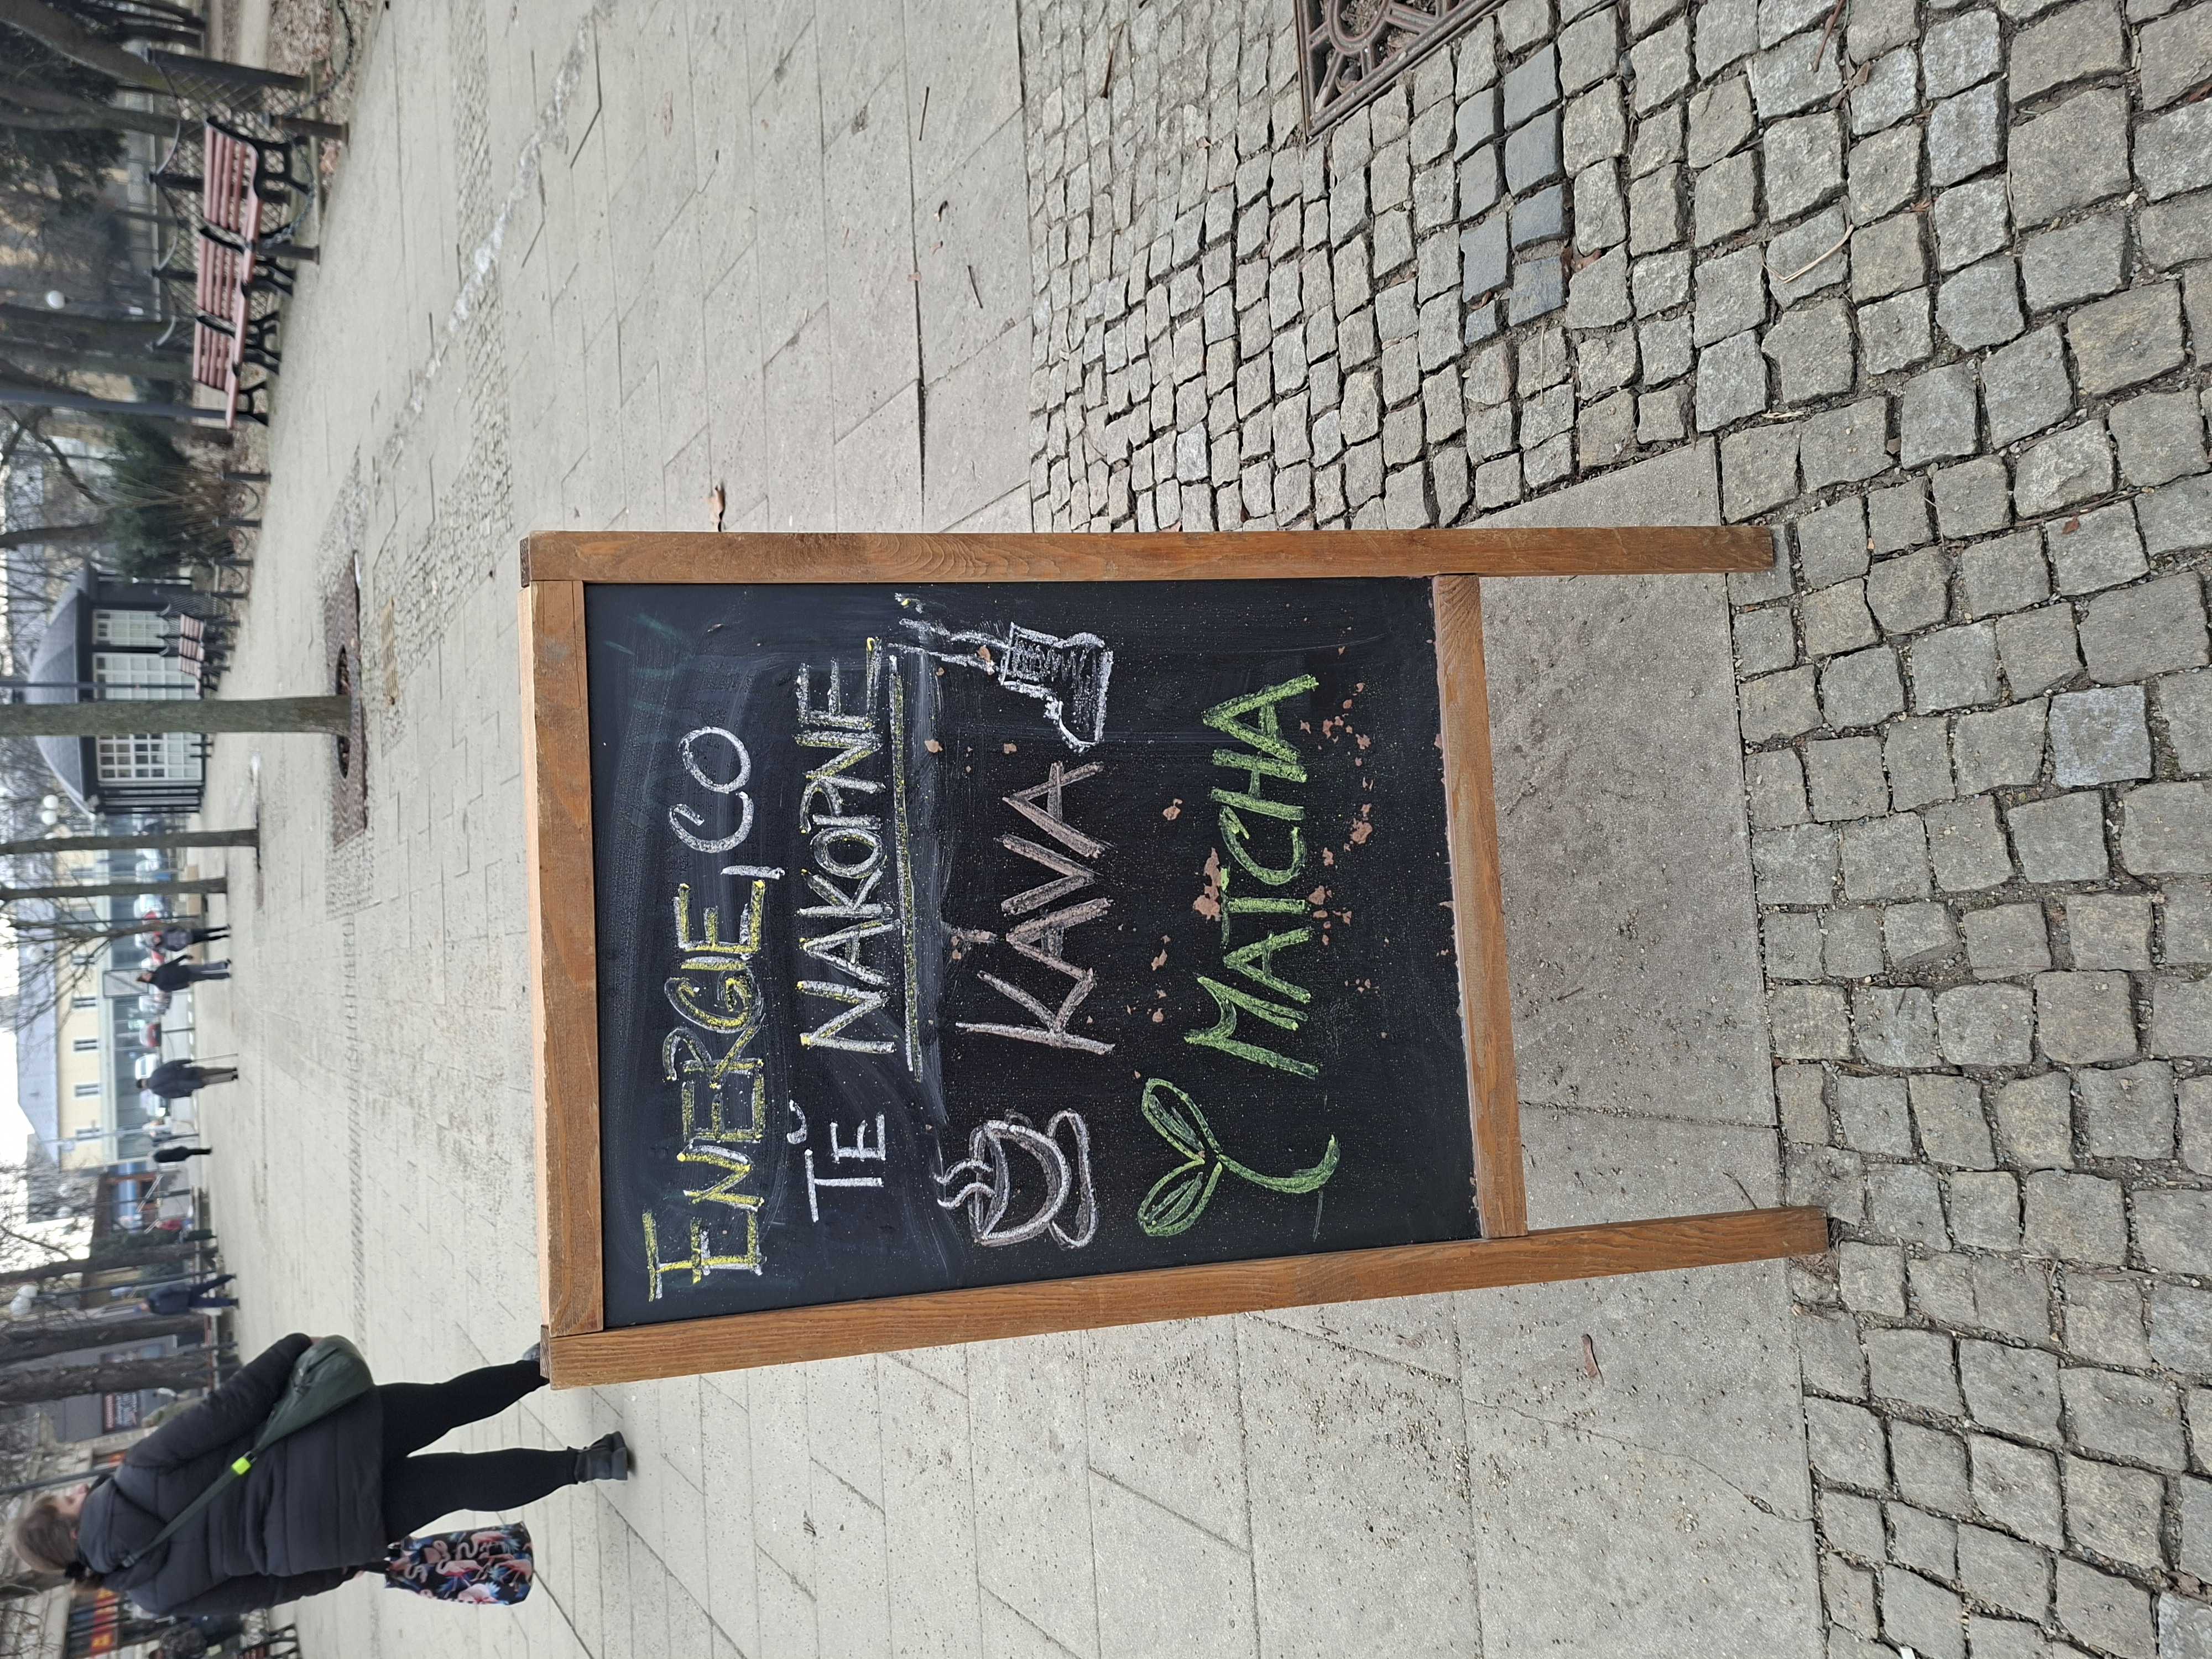 ENERGIE, CO
TĚ NAKOPNE
KÁVA
MATCHA